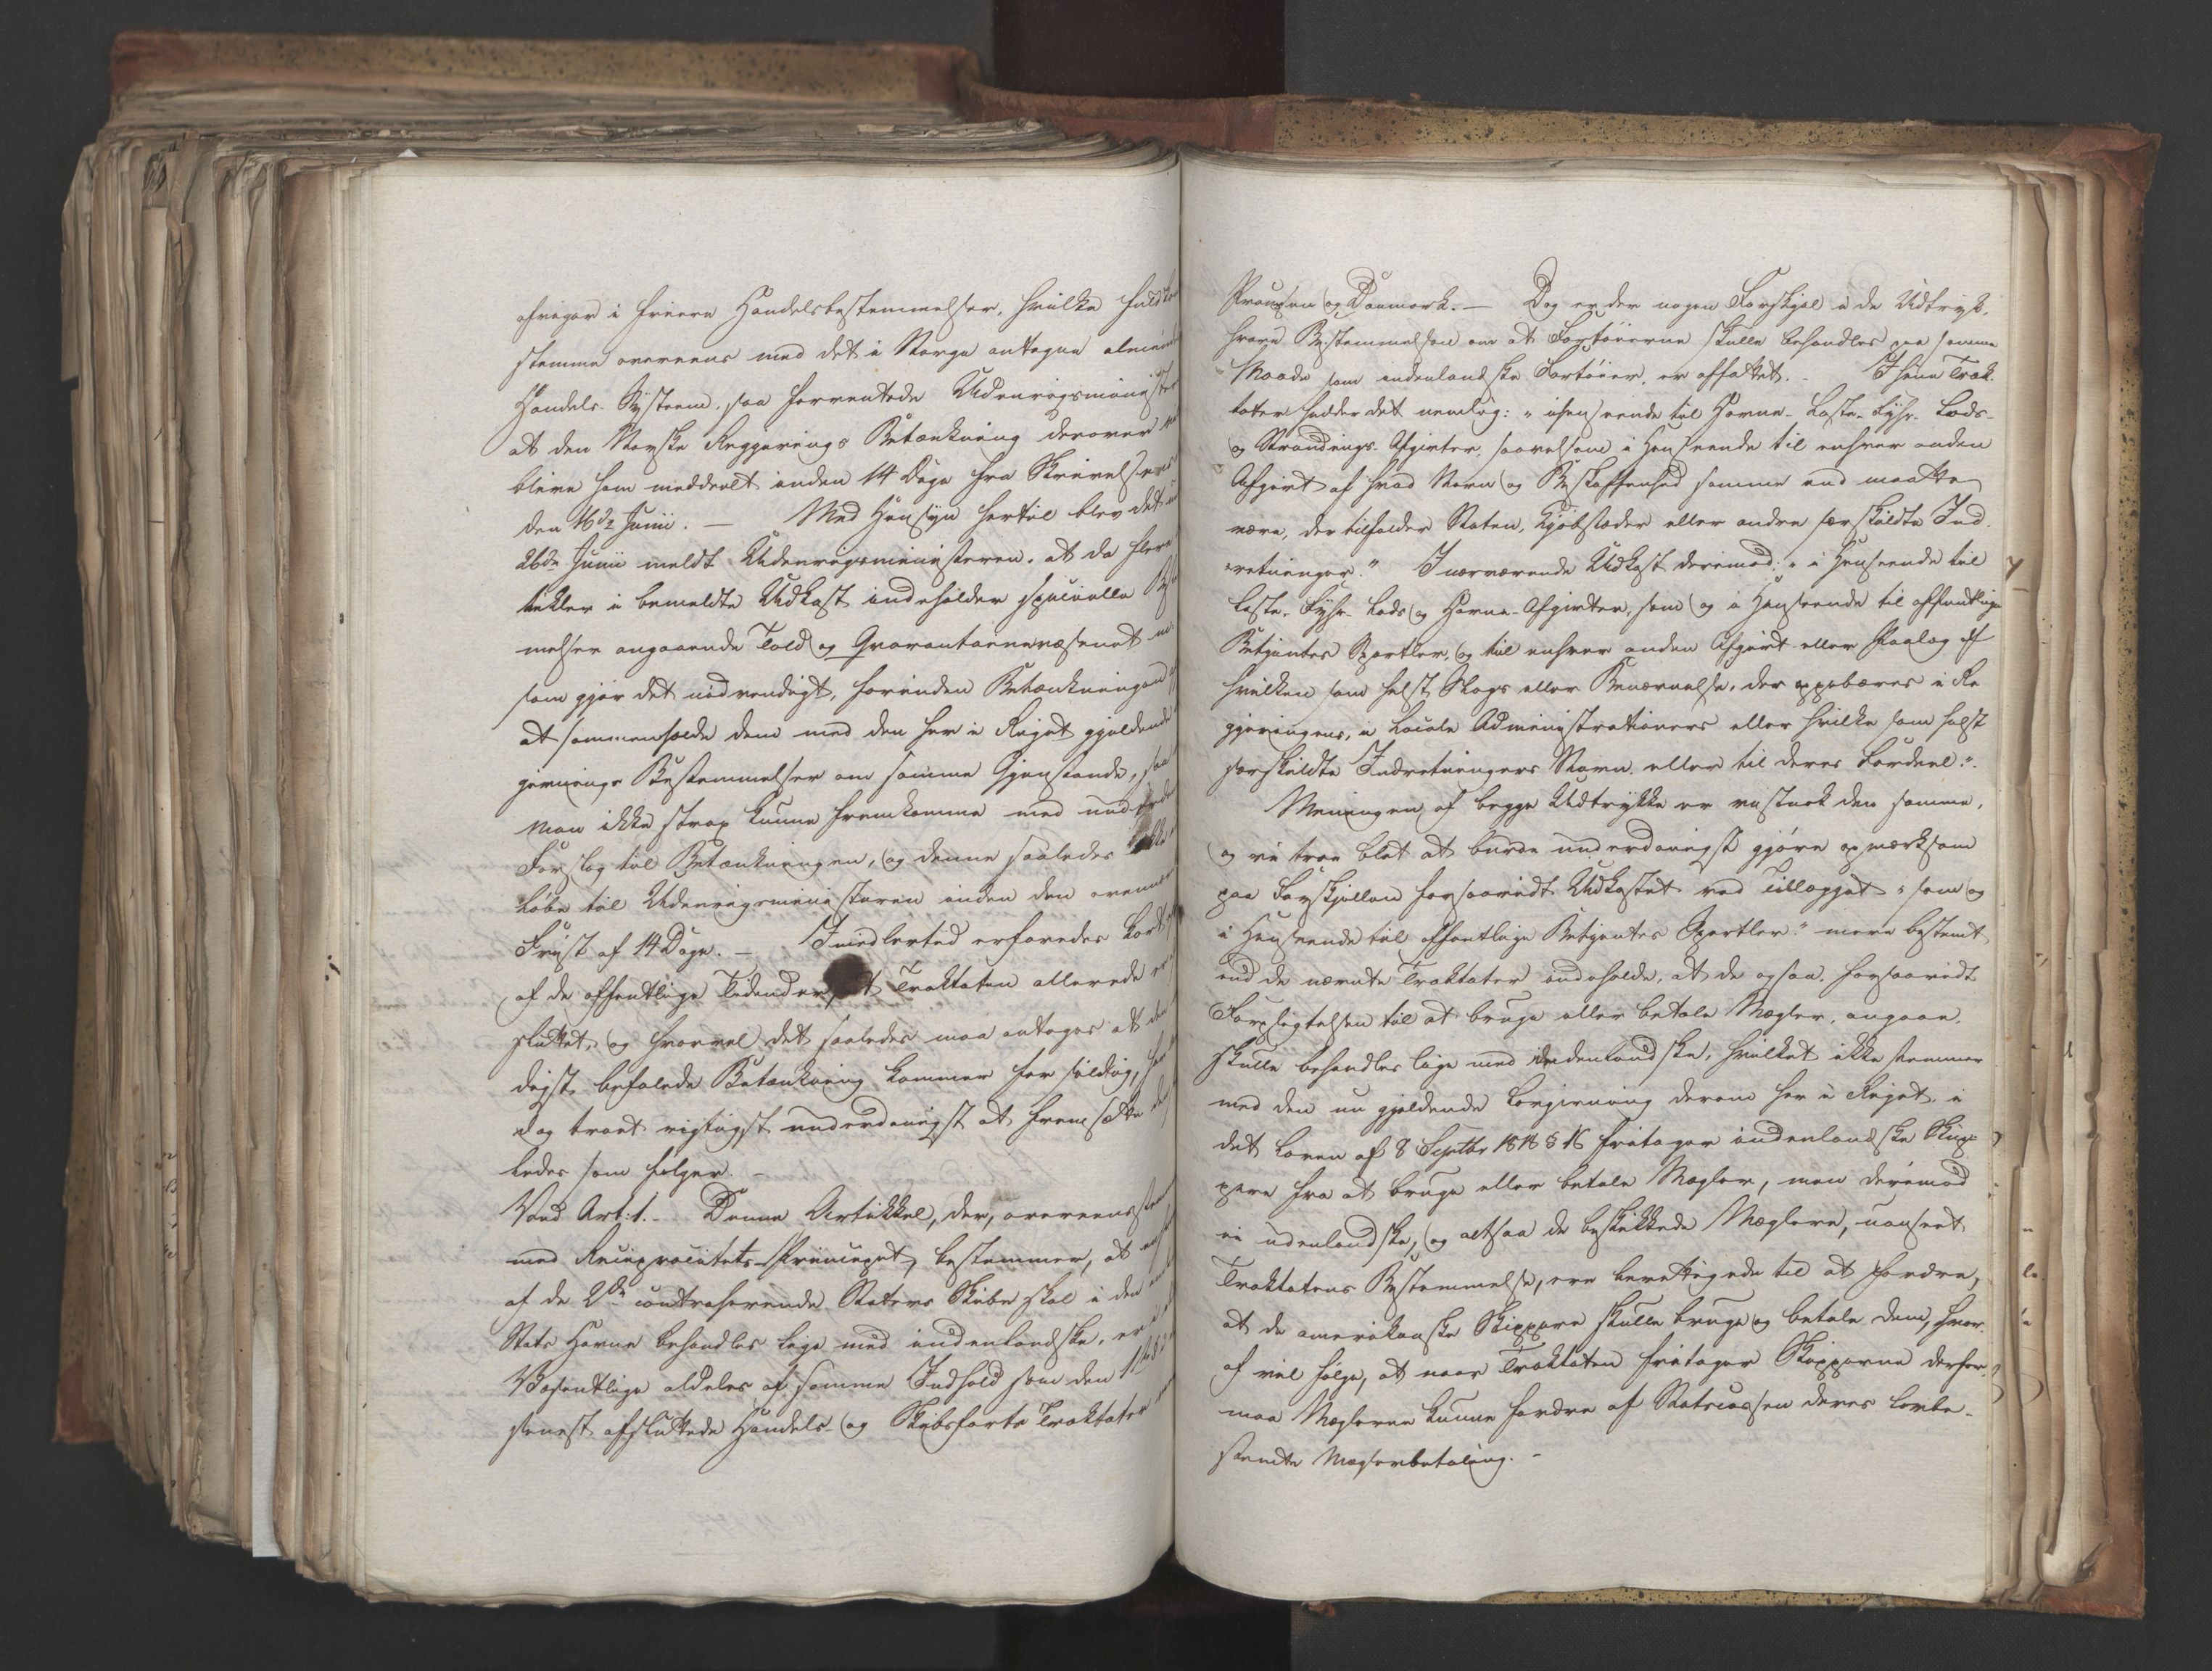 afviger i friere Handelsbestemmelser, hvilke fuld
stemme overeens med det i Norge antagne almind
Handels-System, saa forventede Udenrigsminist
at den Norske Regjerings Betænkning derover
blive ham meddeelt inden 14 Dage fra Skrivelsens
den 16de Junii. — Med Hensyn hertil blev det
26de Junii meldt Udenrigsministeren, at da flere
tikler i bemeldte Udkast indeholder specielle Be
melser angaaende Told og Qvarantainevæsenet
som gjør det nødvendigt, forinden Betænkningen
at sammenholde dem med den her i Riget gjældende
givnings Bestemmelser om samme Gjenstande, saa
man ikke strax kunne fremkomme med underd
Forslag til Betænkningen, og denne saaledes
løbe til Udenrigsministeren inden den ovennæv
Frist af 14 Dage. — Imidlertid erfaredes kort
af de offentlige Tidender, at Traktaten allerede
sluttet, og hvorvel det saaledes maa antages at den
digst befalede Betænkning kommer for sildig,
dog troet rigtigst underdanigst at fremsætte
ledes som følger. —
Ved Art: 1. Denne Artikkel, der, overeensstem
med Reciprocitets-Princippet, bestemmer, at
af de 2de contraherende Staters Skibe skal i den
Stats Havne behandles lige med indenlandske, er i
Væsentlige aldeles af samme Indhold som den 11
senest afsluttede Handels- og Skibsfarts Traktater
Preussen og Danmark. — Dog er der nogen Forskjel i de Udtryk,
hvori Bestemmelsen om at Fartøierne skulle behandles paa samme
Maade som indenlandske Fartøier, er affattet. — I hine Trak-
tater hedder det nemlig: "i henseende til Havne- Laste- Fyhr- Lods-
og Strandings-Afgivter, saavelsom i Henseende til enhver anden
Afgivt af hvad Navn og Beskaffenhed samme end maatte
være, der tilfalder Staten, Kjøbstæder eller andre særskildte Ind-
retninger." I nærværende Udkast derimod: "i Henseende til
Laste- Fyhr- Lods og Havne-Afgivter, som og i Henseende til offentlige
Betjentes Sportler, og til enhver anden Afgivt eller Paalæg af
hvilken som helst Slags eller Benævnelse, der oppebæres i Re
gjeringens, i Locale Administrationers eller hvilke som helst
særskildte Indretningers Navn eller til deres Fordeel."
Meningen af begge Udtrykke er vistnok den samme,
og vi troe blot at burde underdanigst gjøre opmærksom
paa Forskjellen forsaavidt Udkastet ved Tillægget "som og
i Henseende til offentlige Betjentes Sportler." mere bestemt
end de nævnte Traktater indeholde, at de ogsaa, forsaavidt
Forpligtelsen til at bruge eller betale Mægler, angaae,
skulle behandles lige med indenlandske, hvilket ikke stemmer
med den nu gjældende Lovgivning derom her i Riget, i
det Loven af 8 Septbr 1818 § 16 fritager indenlandske Skip-
pere fra at bruge eller betale Mægler, men derimod
ei udenlandske, og altsaa de beskikkede Mæglere, uanseet
Traktatens Bestemmelse, ere berettigede til at fordre,
at de amerikanske Skippere skulle bruge og betale dem, hvor-
af vil følge, at naar Traktaten fritager Skipperne derfor,
maa Mæglerne kunne fordre af Statscassen deres lovbe-
stemte Mæglerbetaling. —